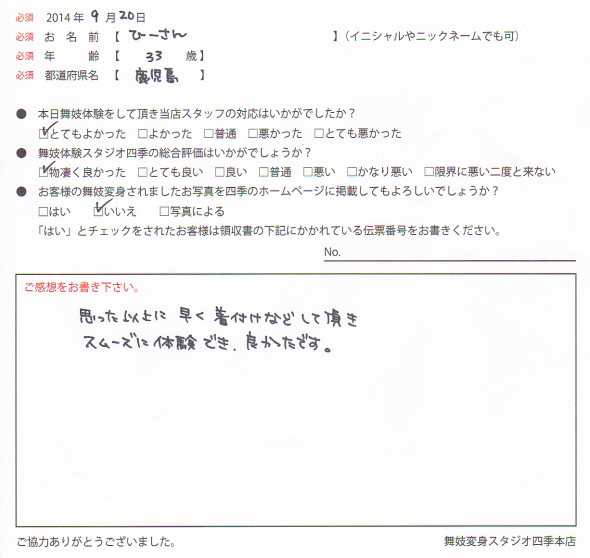 必須 2014年 9月 20日
必須 お名前【 ひーさん 】(イニシャルやニックネームでも可)
必須 年齢【 33 歳】
必須 都道府県名【 鹿児島 】
● 本日舞妓体験をして頂き当店スタッフの対応はいかがでしたか?
☑とてもよかった □よかった □普通 □悪かった □とても悪かった
● 舞妓体験スタジオ四季の総合評価はいかがでしょうか?
☑物凄く良かった □とても良い □良い □普通 □悪い □かなり悪い □限界に悪い二度と来ない
● お客様の舞妓変身されましたお写真を四季のホームページに掲載してもよろしいでしょうか?
□はい ☑いいえ □写真による
「はい」とチェックをされたお客様は領収書の下記にかかれている伝票番号をお書きください。
No.
ご感想をお書き下さい。
思った以上に 早く 着付けなどして頂き
スムーズに体験でき、良かったです。
ご協力ありがとうございました。 舞妓変身スタジオ四季本店